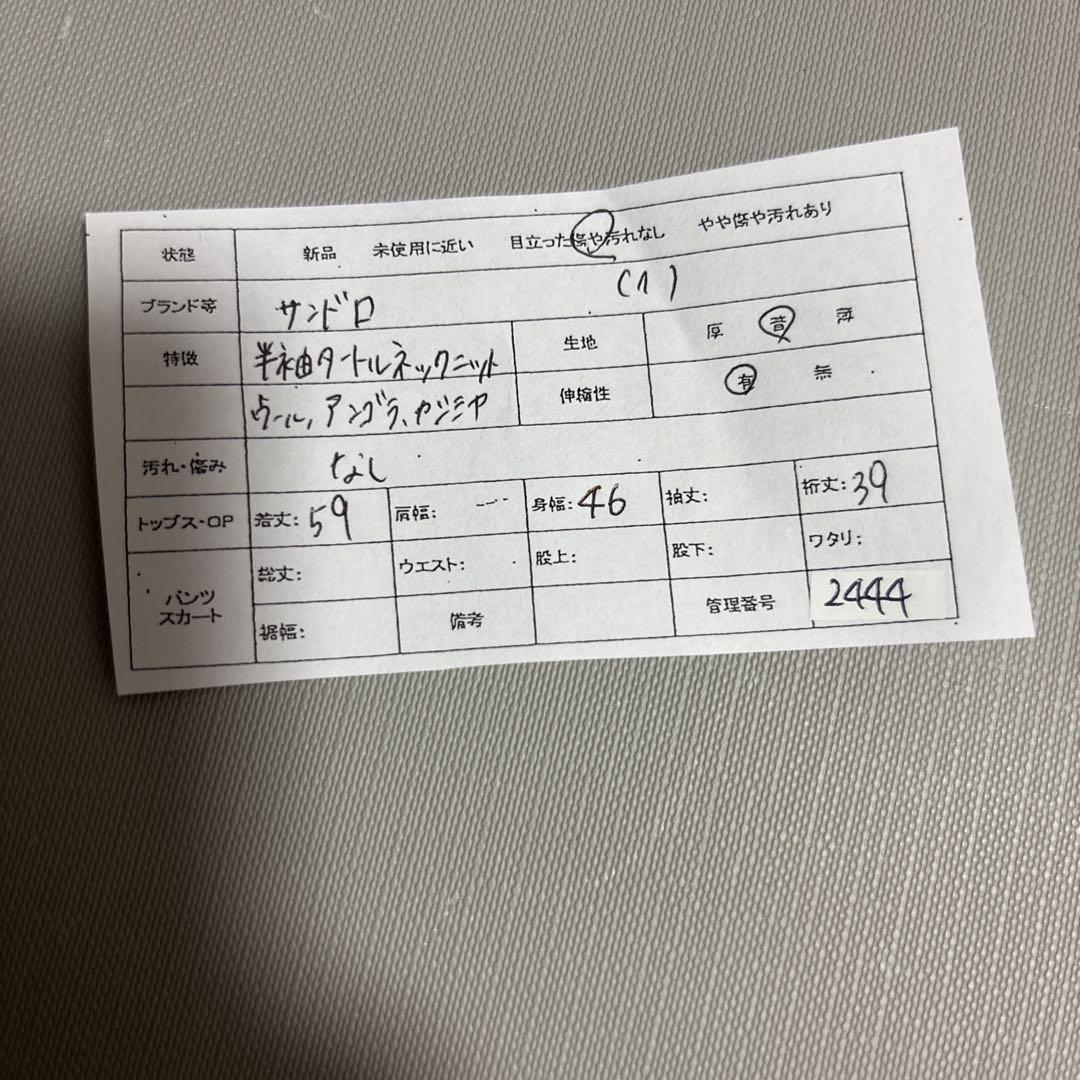 状態 新品 未使用に近い 目立った傷や汚れなし やや傷や汚れあり
ブランド等 サンドロ (1)
特徴 半袖タートルネックニット 生地 厚 普 薄
ウール,アンゴラ、カシミヤ 伸縮性 有 無
汚れ・傷み なし
トップス・OP 着丈: 59 肩幅: -- 身幅: 46 袖丈: 裄丈: 39
パンツ スカート 総丈: ウエスト: 股上: 股下: ワタリ:
裾幅: 備考 管理番号 2444